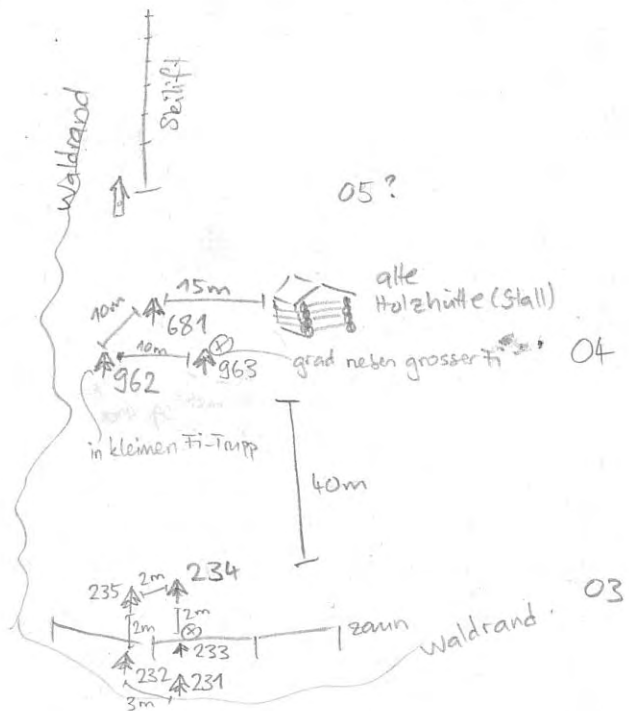 Waldrand
Skilift
05?
15m
alte
Holzhütte (Stall)
10m
681
10m
962
963
grad neben grosser Fi
04
in kleinen Fi-Trupp
40m
235
2m
234
03
2m
2m
zaun
Waldrand.
233
232
231
3m